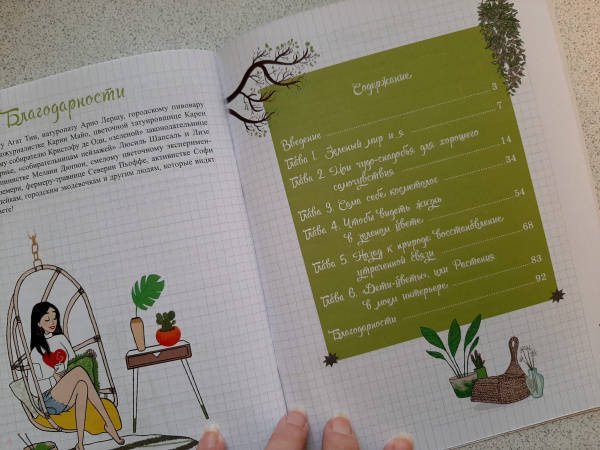 Благодарности
у Агат Тин, натуропату Арно Лершу, городскому пивовару
Карин Майо, цветочной татуировщице Карен
собирателю Кристофу де Оди, «зеленой» законодательнице
«собирательницам пейзажей» Люсиль Шапсаль и Лизе
Мелани смелому цветочному эксперимен-
фермеру-травнице Северин Пьоффе, активистке Софи
городским экодевочкам и другим людям, которые видят
Содержание
Введение 3
Глава 1. Зеленый мир и я 7
Глава 2. Мои чудо-снадобья для хорошего
самочувствия 14
Глава 3. Сама себе косметолог 34
Глава 4. Чтобы видеть жизнь
в зеленом цвете 54
Глава 5. Назад к природе: восстановление
утраченной связи 68
Глава 6. Дети-цветы, или Растения
в моем интерьере 83
Благодарности 92